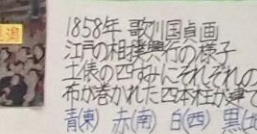 1858年 歌川国貞画
江戸の相撲興行の様子
土俵の四すみにそれぞれの
布が巻かれた四本柱が建て
青(東) 赤(南) 白(西) 黒(